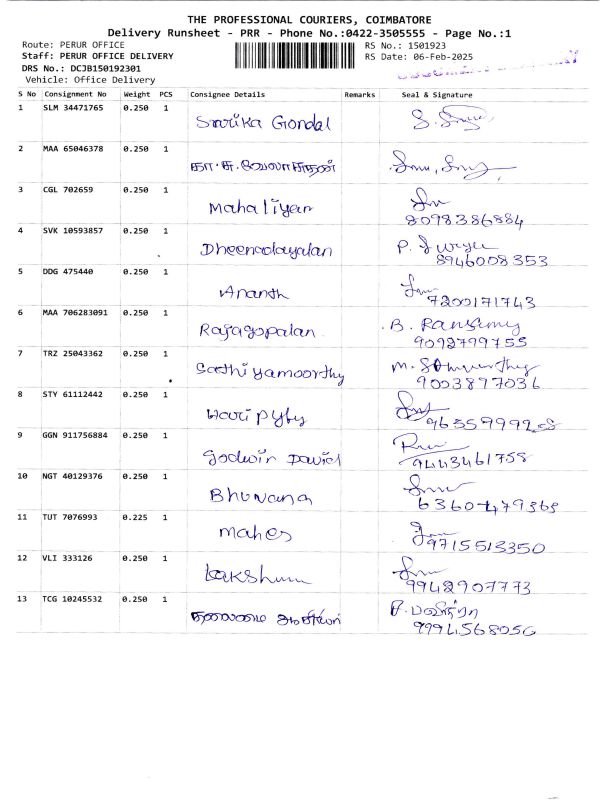 THE PROFESSIONAL COURIERS, COIMBATORE
Delivery Runsheet - PRR - Phone No.:0422-3505555 - Page No.:1
Route: PERUR OFFICE RS No.: 1501923
Staff: PERUR OFFICE DELIVERY RS Date: 06-Feb-2025
DRS No.: DCJB150192301
Vehicle: Office Delivery
S No Consignment No Weight PCS Consignee Details Remarks Seal & Signature
1 SLM 34471765 0.250 1 Gondal
2 MAA 65046378 0.250 1
3 CGL 702659 0.250 1 Mahaliyan
8098386884
4 SVK 10593857 0.250 1 Dheenadayalan P.
8946008353
5 DDG 475440 0.250 1 Ananth
7200171743
6 MAA 706283091 0.250 1 Rajagopalan B.
9092799755
7 TRZ 25043362 0.250 1 Sathiyamoorthy M.
9003897036
8 STY 61112442 0.250 1 Hari
9 GGN 911756884 0.250 1 Godwin David
9443461758
10 NGT 40129376 0.250 1 Bhuvana
6360479369
11 TUT 7076993 0.225 1 Mahes
9715513350
12 VLI 333126 0.250 1
9942907773
13 TCG 10245532 0.250 1 தலைமை ஆசிரியர் P. பவித்ரா
9994568050